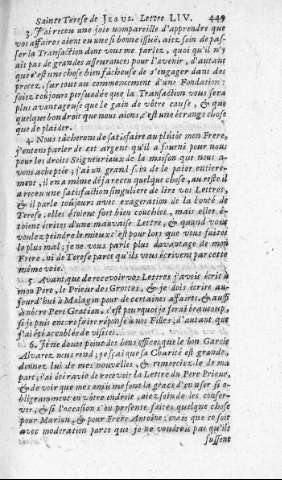 Sainte Terese de JESUS. Lettre LIV. 449
3. J'ai receu une joie nompareille d'apprendre que
vos affaires aient eu une si bonne issuë, aiez soin de pas-
ser la Transaction dont vous me parlez, quoi qu'il n'y
ait pas de grandes assurances pour l'avenir, d'autant
que c'est une chose bien fâcheuse de s'engager dans des
procez, sur tout au commencement d'une Fondation:
soiez toûjours persuadée que la Transaction vous sera
plus avantageuse que le gain de vôtre cause, & que
quelque bon droit que nous aions, c'est une étrange chose
que de plaider.
4. Nous tâcherons de satisfaire au plûtôt mon Frere,
j'entens parler de cet argent qu'il a fourni pour nous
pour les droits Seigneuriaux de la maison que nous a-
vons achepteé; j'ai un grand soin de le paier entiere-
ment, il en a même déja receu quelque chose, au reste il
a receu une satisfaction singuliere de lire vos Lettres,
& il parle toûjours avec exageration de la bonté de
Terese, elles étoient fort bien couchées, mais elles é-
toient écrites d'une mauvaise Lettre, & quand vous
voulez peindre le mieux c'est pour lors que vous faites
le plus mal; je ne vous parle plus davantage de mon
Frere, ni de Terese parce qu'ils vous écrivent par cette
même voie.
5. Avant que de recevoir vos Lettres j'avois écrit à
mon Pere, le Prieur des Grottes, & je dois écrire au-
jourd'hui à Malagon pour de certaines affaires, & aussi
à nôtre Pere Gratian, c'est pourquoi je ferai beaucoup,
si je puis encore faire réponse à nos Filles, d'autant que
j'ai été accablée de visites.
6. Je ne doute point des bons offices, que le bon Garcie
Alvarez nous rend, je sçai que sa Charité est grande,
donnez lui de mes nouvelles, & remerciez-le de ma
part; j'ai été ravie de recevoir la Lettre du Pere Prieur,
& de voir que mes amis me font la grace d'en user si o-
bligeamment en vôtre endroit, aiez soin de les conser-
ver, & si l'occasion s'en presente faites quelque chose
pour Marian, & pour Frere Antoine; mais que ce soit
avec moderation parce que je ne voudrois pas qu'ils
fussent